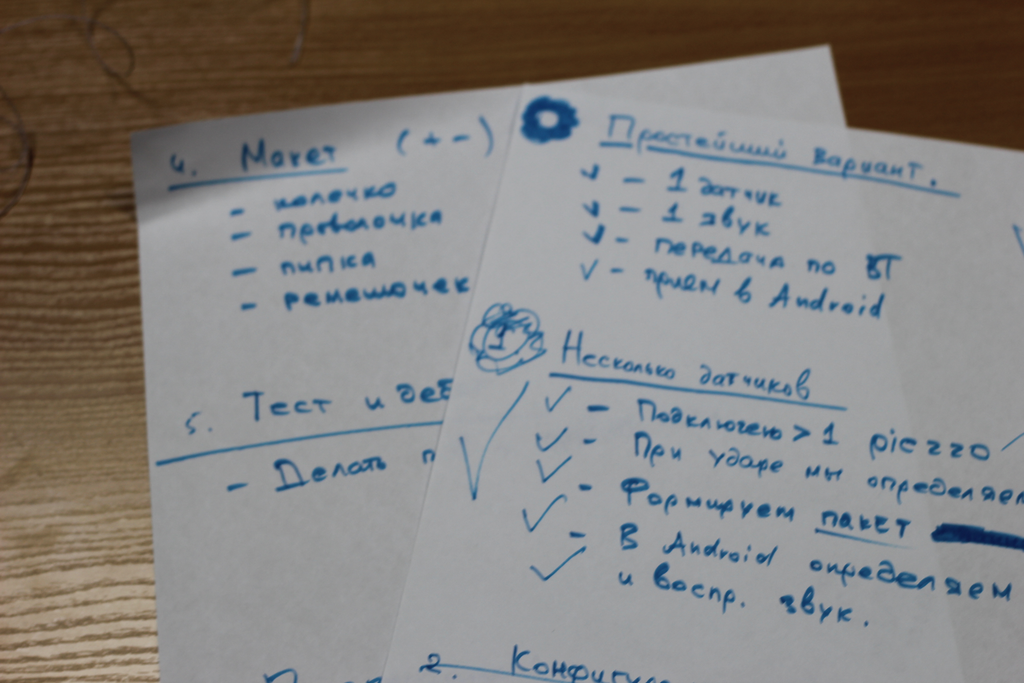 4. Макет (+ -)
- колечко
- проволочка
- пипка
- ремешочек
5. Тест и деб
- Делать п
Простейший вариант.
- 1 датчик
- 1 звук
- передача по BT
- приём в Android
1 Несколько датчиков
- Подключено > 1 piezzo
- При ударе мы определяем
- Формируем пакет
- В Android определяем
и воспр. звук.
2. Конфигу